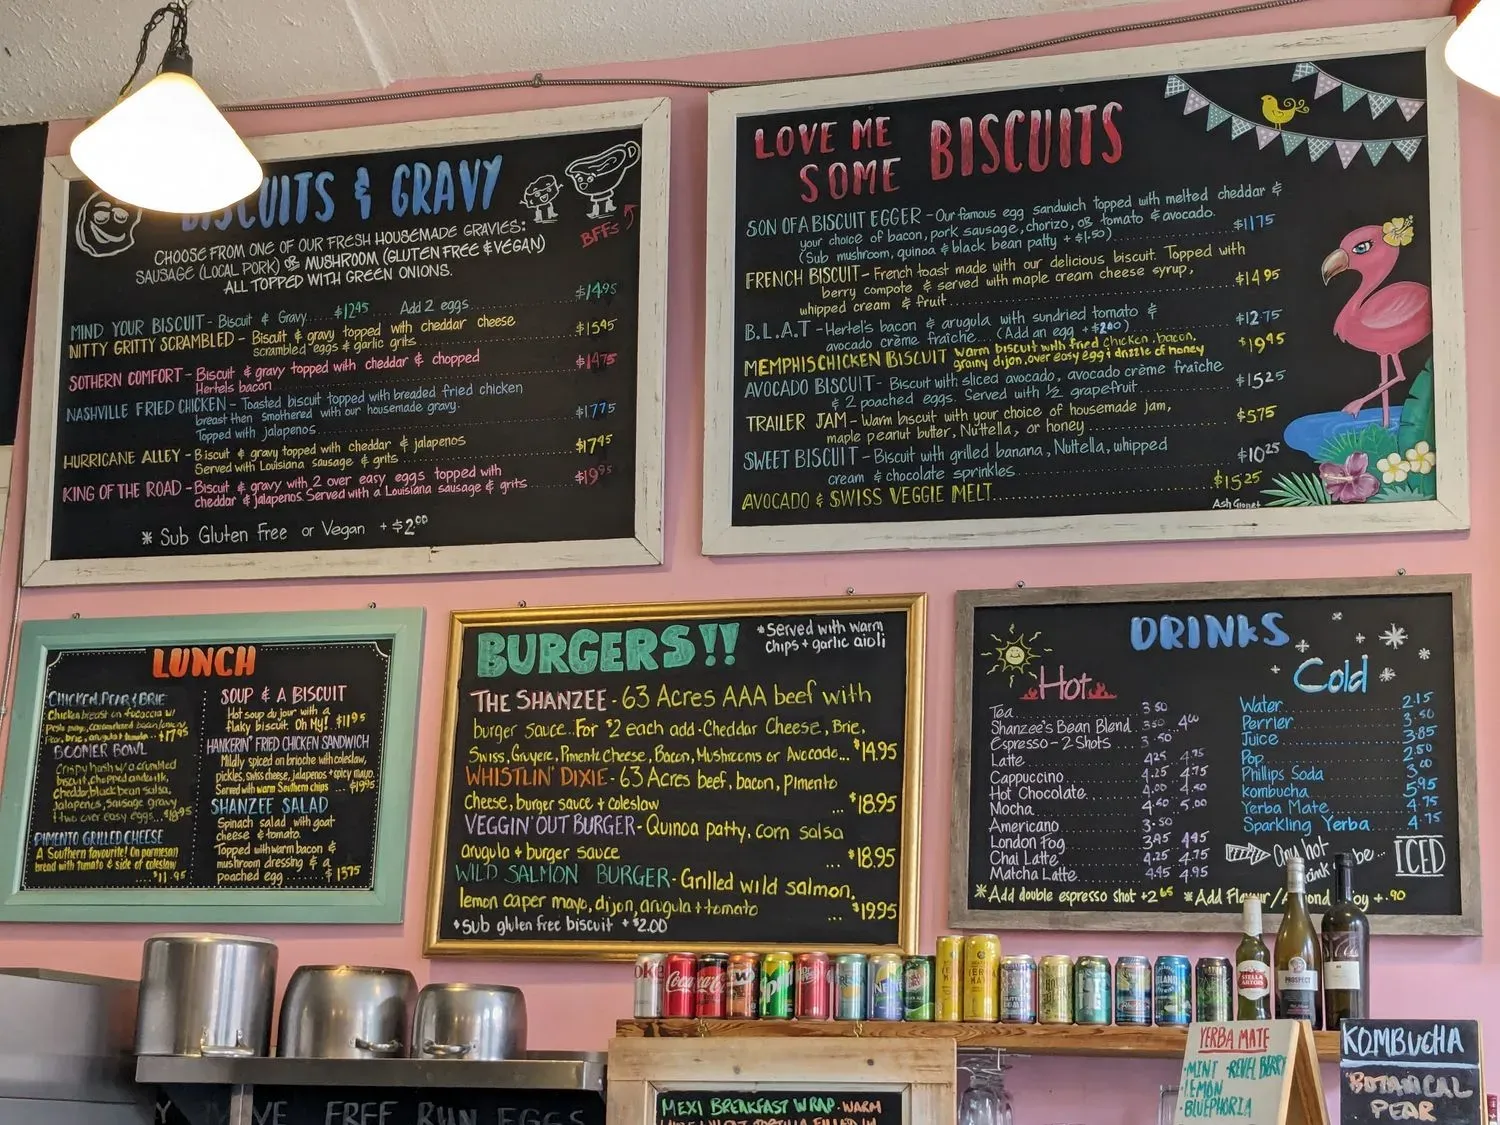 BISCUITS & GRAVY
BFFs
CHOOSE FROM ONE OF OUR FRESH HOUSEMADE GRAVIES:
SAUSAGE (LOCAL PORK) OR MUSHROOM (GLUTEN FREE & VEGAN)
ALL TOPPED WITH GREEN ONIONS.
MIND YOUR BISCUIT - Biscuit & Gravy.....$12.45 Add 2 eggs.....$14.95
NITTY GRITTY SCRAMBLED - Biscuit & gravy topped with cheddar cheese
scrambled eggs & garlic grits.....$15.95
SOTHERN COMFORT - Biscuit & gravy topped with cheddar & chopped
Hertels bacon.....$14.75
NASHVILLE FRIED CHICKEN - Toasted biscuit topped with breaded fried chicken
breast then smothered with our housemade gravy.
Topped with jalapenos.....$17.75
HURRICANE ALLEY - Biscuit & gravy topped with cheddar & jalapenos
Served with Louisiana sausage & grits.....$17.45
KING OF THE ROAD - Biscuit & gravy with 2 over easy eggs topped with
cheddar & jalapenos. Served with a Louisiana sausage & grits.....$19.95
* Sub Gluten Free or Vegan + $2.00
LOVE ME
SOME BISCUITS
SON OF A BISCUIT EGGER - Our famous egg sandwich topped with melted cheddar &
your choice of bacon, pork sausage, chorizo, OR tomato & avocado.
(Sub mushroom, quinoa & black bean patty + $1.50) $11.75
FRENCH BISCUIT - French toast made with our delicious biscuit. Topped with
berry compote & served with maple cream cheese syrup,
whipped cream & fruit.....$14.95
B.L.A.T - Hertel's bacon & arugula with sundried tomato &
avocado crème fraiche... (Add an egg + $2.00).....$12.75
MEMPHIS CHICKEN BISCUIT warm biscuit with fried chicken, bacon,
grainy dijon, over easy egg & drizzle of honey $19.45
AVOCADO BISCUIT - Biscuit with sliced avocado, avocado crème fraiche
& 2 poached eggs. Served with ½ grapefruit.....$15.25
TRAILER JAM - Warm biscuit with your choice of housemade jam,
maple peanut butter, Nuttella, or honey.....$5.75
SWEET BISCUIT - Biscuit with grilled banana, Nuttella, whipped
cream & chocolate sprinkles.....$10.25
AVOCADO & SWISS VEGGIE MELT.....$15.25
Ash Gionet
LUNCH
CHICKEN, PEAR & BRIE
Chicken breast on focaccia w/
pesto mayo, caramelized bacon
pear, brie, arugula & tomato $17.95
BOOMER BOWL
Crispy hash w/ a crumbled
biscuit, chopped andouille,
cheddar, black bean salsa,
jalapenos, sausage gravy
& two over easy eggs...$18.95
PIMENTO GRILLED CHEESE
A Southern favourite! On parmesan
bread with tomato & side of coleslaw
....$11.95
SOUP & A BISCUIT
Hot soup du jour with a
flaky biscuit. Oh My! $11.95
HANKERIN' FRIED CHICKEN SANDWICH
Mildly spiced on brioche with coleslaw,
pickles, swiss cheese, jalapenos & spicy mayo.
Served with warm Southern chips ...$19.95
SHANZEE SALAD
Spinach salad with goat
cheese & tomato.
Topped with warm bacon &
mushroom dressing & a
poached egg.....$13.75
BURGERS!!
*Served with warm
chips + garlic aioli
THE SHANZEE - 63 Acres AAA beef with
burger sauce...For $2 each add - Cheddar Cheese, Brie,
Swiss, Gruyere, Pimento Cheese, Bacon, Mushrooms or Avocado... $14.95
WHISTLIN' DIXIE - 63 Acres beef, bacon, Pimento
Cheese, burger sauce + coleslaw ...$18.95
VEGGIN' OUT BURGER - Quinoa patty, corn salsa
arugula + burger sauce ...$18.95
WILD SALMON BURGER - Grilled wild salmon,
lemon caper mayo, dijon, arugula + tomato ... $19.95
*sub gluten free biscuit + $2.00
DRINKS
Hot
Tea 3.50
Shanzee's Bean Blend 3.50 4.00
Espresso - 2 Shots 3.50
Latte 4.25 4.75
Cappuccino 4.25 4.75
Hot Chocolate 4.00 4.50
Mocha 4.60 5.00
Americano 3.50
London Fog 3.95 4.45
Chai Latte 4.25 4.75
Matcha Latte 4.45 4.95
*Add double espresso shot +2.65
Cold
Water 2.15
Perrier 3.50
Juice 3.85
Pop 2.50
Phillips Soda 3.00
Kombucha 5.95
Yerba Mate 4.75
Sparkling Yerba 4.75
Any hot
be... ICED
*Add Flavour / +.90
Coca-Cola
STELLA ARTOIS
PROSPECT
YERBA MATE
-MINT -REVEL BERRY
-LEMON
-BLUEPHORIA
KOMBUCHA
BOTANICAL
PEAR
FREE RUN EGGS
MEXI BREAKFAST WRAP - WARM